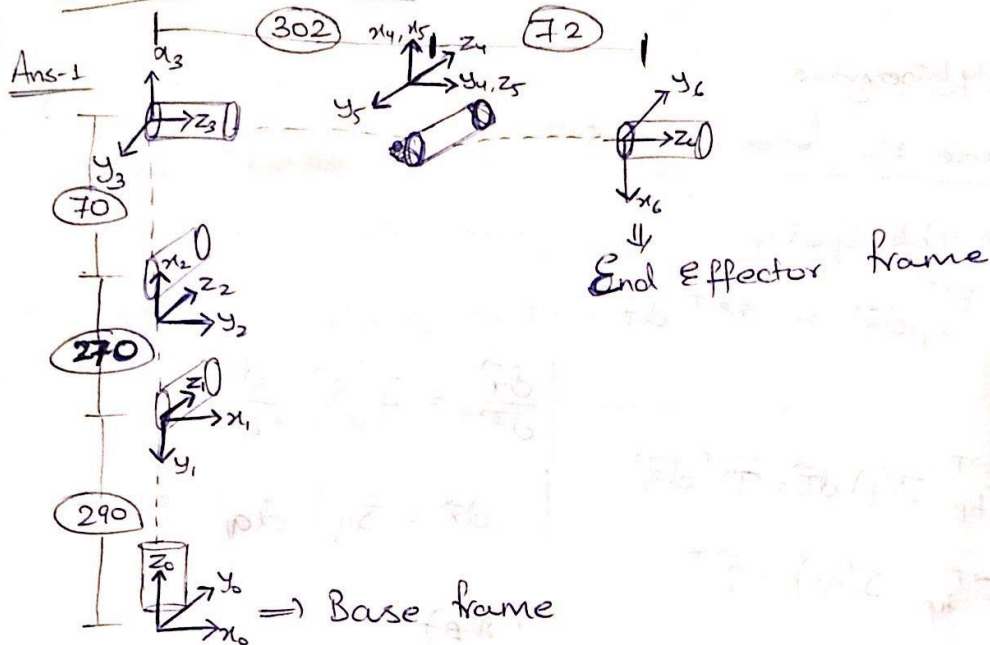 302
72
Ans-1
x₃
x₄, x₅
z₄
y₄, z₅
y₅
y₆
z₃
y₃
z₆
x₆
⇓
End Effector frame
70
x₂
z₂
y₂
270
z₁
x₁
y₁
290
z₀
y₀
x₀
⇒ Base frame